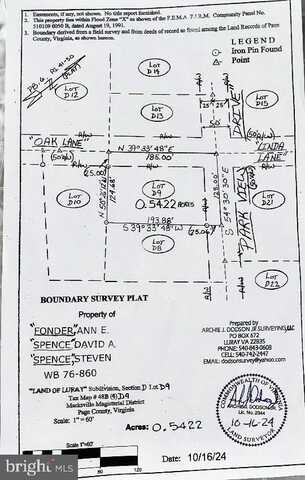 1. Easements, if any, not shown. No title report furnished.
2. This site within Flood Zone "X" as shown of the F.E.M.A. F.I.R.M. Community Panel No.
510109 0050 B, dated August 19, 1991.
3. Boundary derived from a field survey and from deeds of record as found among the Land Records of Page
County, Virginia, as shown hereon.
LEGEND
Iron Pin Found
Point
LOT
D14
LOT
D12
LOT
D13
LOT
D15
25'
25'
50'
DRIVE"
"OAK LANE"
N 39°33'48"E
185.00'
"LINDA
LANE"
(50'R/W)
(50'R/W)
R/W
R/W
(25.00')
LOT
D10
LOT
D9
0.5422 ACRES
193.88'
S 39°33'48"W
(25.00')
LOT
D8
S 54°30'30"E
"PARK VIEW
LOT
D21
LOT
D22
BOUNDARY SURVEY PLAT
Property of
"FONDER" ANN E.
"SPENCE" DAVID A.
"SPENCE" STEVEN
WB 76-860
"LAND OF LURAY" Subdivision, Section D Lot D9
Tax Map # 48B (4) D9
Marksville Magisterial District
Page County, Virginia
Scale: 1" = 60'
Acres: 0.5422
Prepared by
ARCHIE J. DODSON JR SURVEYING, LLC
PO BOX 672
LURAY VA 22835
PHONE: 540-843-0603
CELL: 540-742-2447
COMMONWEALTH OF VIRGINIA
10-16-24
LAND SURVEYOR
Scale 1"=60'
60
120
Date: 10/16/24
BRIGHT MLS